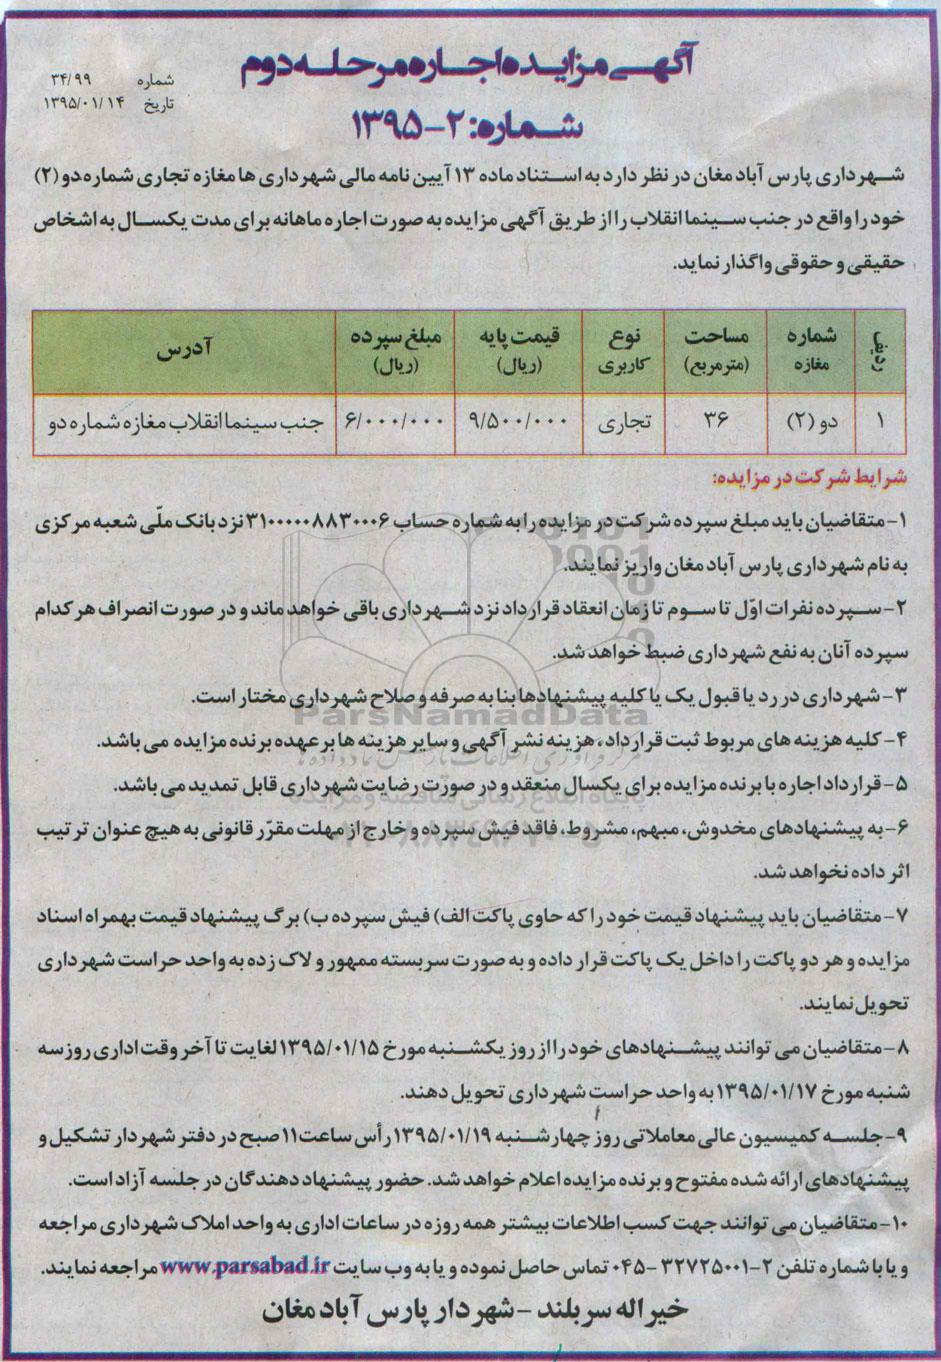 آگهی مزایده اجاره مرحله دوم
شماره ۳۴/۹۹
تاریخ ۱۳۹۵/۰۱/۱۴
شماره: ۲-۱۳۹۵
شهرداری پارس آباد مغان در نظر دارد به استناد ماده ۱۳ آیین نامه مالی شهرداری ها مغازه تجاری شماره دو (۲)
خود را واقع در جنب سینما انقلاب را از طریق آگهی مزایده به صورت اجاره ماهانه برای مدت یکسال به اشخاص
حقیقی و حقوقی واگذار نماید.
ردیف شماره مغازه مساحت (مترمربع) نوع کاربری قیمت پایه (ریال) مبلغ سپرده (ریال) آدرس
۱ دو (۲) ۳۶ تجاری ۹/۵۰۰/۰۰۰ ۶/۰۰۰/۰۰۰ جنب سینما انقلاب مغازه شماره دو
شرایط شرکت در مزایده:
۱-متقاضیان باید مبلغ سپرده شرکت در مزایده را به شماره حساب ۳۱۰۰۰۰۰۸۸۳۰۰۰۶ نزد بانک ملّی شعبه مرکزی
به نام شهرداری پارس آباد مغان واریز نمایند.
۲-سپرده نفرات اوّل تا سوم تا زمان انعقاد قرارداد نزد شهرداری باقی خواهد ماند و در صورت انصراف هر کدام
سپرده آنان به نفع شهرداری ضبط خواهد شد.
۳-شهرداری در رد یا قبول یک یا کلیه پیشنهادها بنا به صرفه و صلاح شهرداری مختار است.
ParsNamadData
۴-کلیه هزینه های مربوط ثبت قرارداد، هزینه نشر آگهی و سایر هزینه ها بر عهده برنده مزایده می باشد.
۵-قرارداد اجاره با برنده مزایده برای یکسال منعقد و در صورت رضایت شهرداری قابل تمدید می باشد.
پایگاه اطلاع رسانی مناقصه و مزایده
۶-به پیشنهادهای مخدوش، مبهم، مشروط، فاقد فیش سپرده و خارج از مهلت مقرّر قانونی به هیچ عنوان ترتیب
اثر داده نخواهد شد.
۷-متقاضیان باید پیشنهاد قیمت خود را که حاوی پاکت الف) فیش سپرده ب) برگ پیشنهاد قیمت بهمراه اسناد
مزایده و هر دو پاکت را داخل یک پاکت قرار داده و به صورت سربسته ممهور و لاک زده به واحد حراست شهرداری
تحویل نمایند.
۸-متقاضیان می توانند پیشنهادهای خود را از روز یکشنبه مورخ ۱۳۹۵/۰۱/۱۵ لغایت تا آخر وقت اداری روز سه
شنبه مورخ ۱۳۹۵/۰۱/۱۷ به واحد حراست شهرداری تحویل دهند.
۹-جلسه کمیسیون عالی معاملاتی روز چهارشنبه ۱۳۹۵/۰۱/۱۹ رأس ساعت ۱۱ صبح در دفتر شهردار تشکیل و
پیشنهادهای ارائه شده مفتوح و برنده مزایده اعلام خواهد شد. حضور پیشنهاد دهندگان در جلسه آزاد است.
۱۰-متقاضیان می توانند جهت کسب اطلاعات بیشتر همه روزه در ساعات اداری به واحد املاک شهرداری مراجعه
و یا با شماره تلفن ۲-۳۲۷۲۵۰۰۱-۰۴۵ تماس حاصل نموده و یا به وب سایت www.parsabad.ir مراجعه نمایند.
خیراله سربلند - شهردار پارس آباد مغان